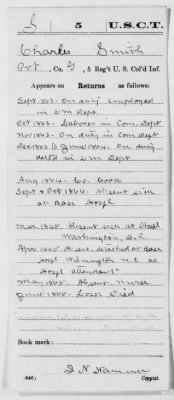 S 5 U.S.C.T.
Charles Smith
Pvt, Co. G, 5 Reg't U. S. Col'd Inf.
Appears on Returns as follows:
Sept 1863. On duty employed
in Q M Dept
Oct 1863. Laborer in Com. Dept
Nov 1863. On duty in Com. dept
Dec 1863 to June 1864. On duty
det'd in Q M Dept
Aug 1864. Co. Cook
Sept & Oct 1864. Absent sick
at Base Hospl
Mar 1865. Absent sick at Hospl
Washington, D.C.
Apr 1865. Absent detached at Base
Hospl Wilmington N.C. as
Hospl attendant
May 1865. Absent Nurse
June 1865. Loss Died
Book mark:
(546) Copyist.